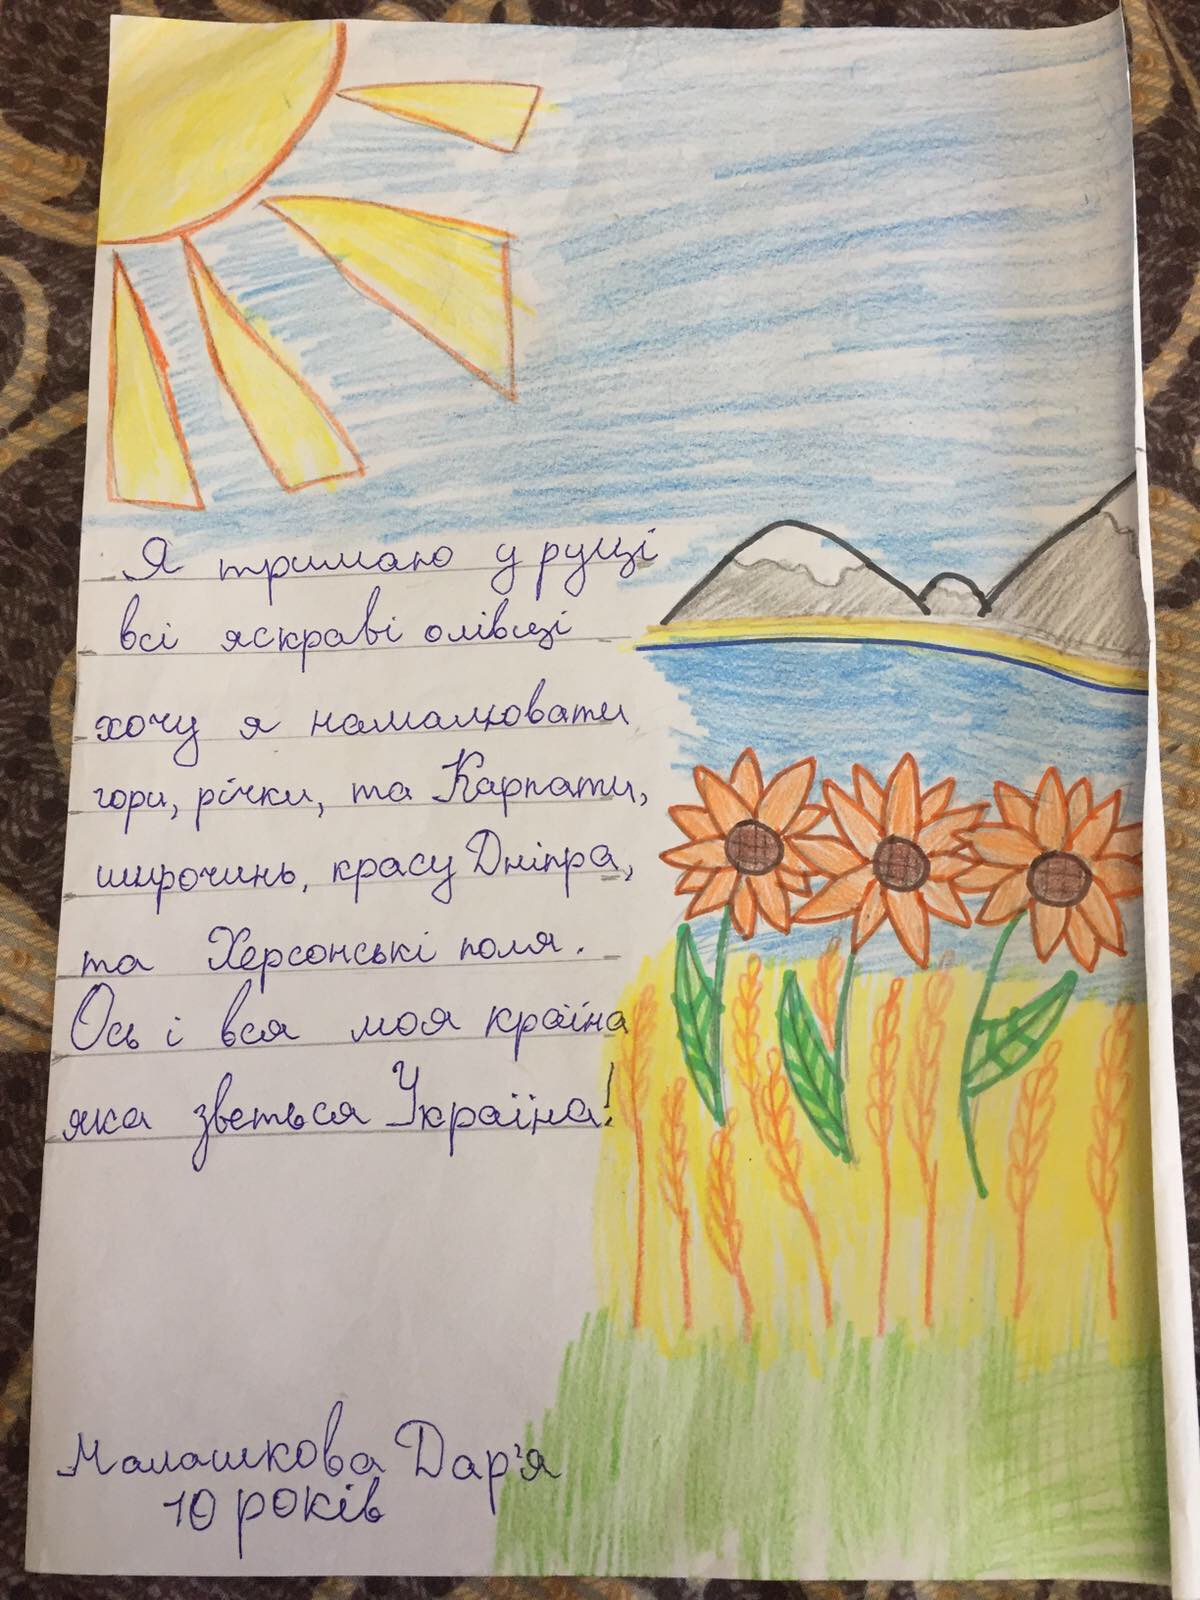 Я тримаю у руці
всі яскраві олівці
хочу я намалювати
гори, річки, та Карпати,
широчинь, красу Дніпра,
та Херсонські поля.
Ось і вся моя країна
яка зветься Україна!
Малашкова Дар'я
10 років